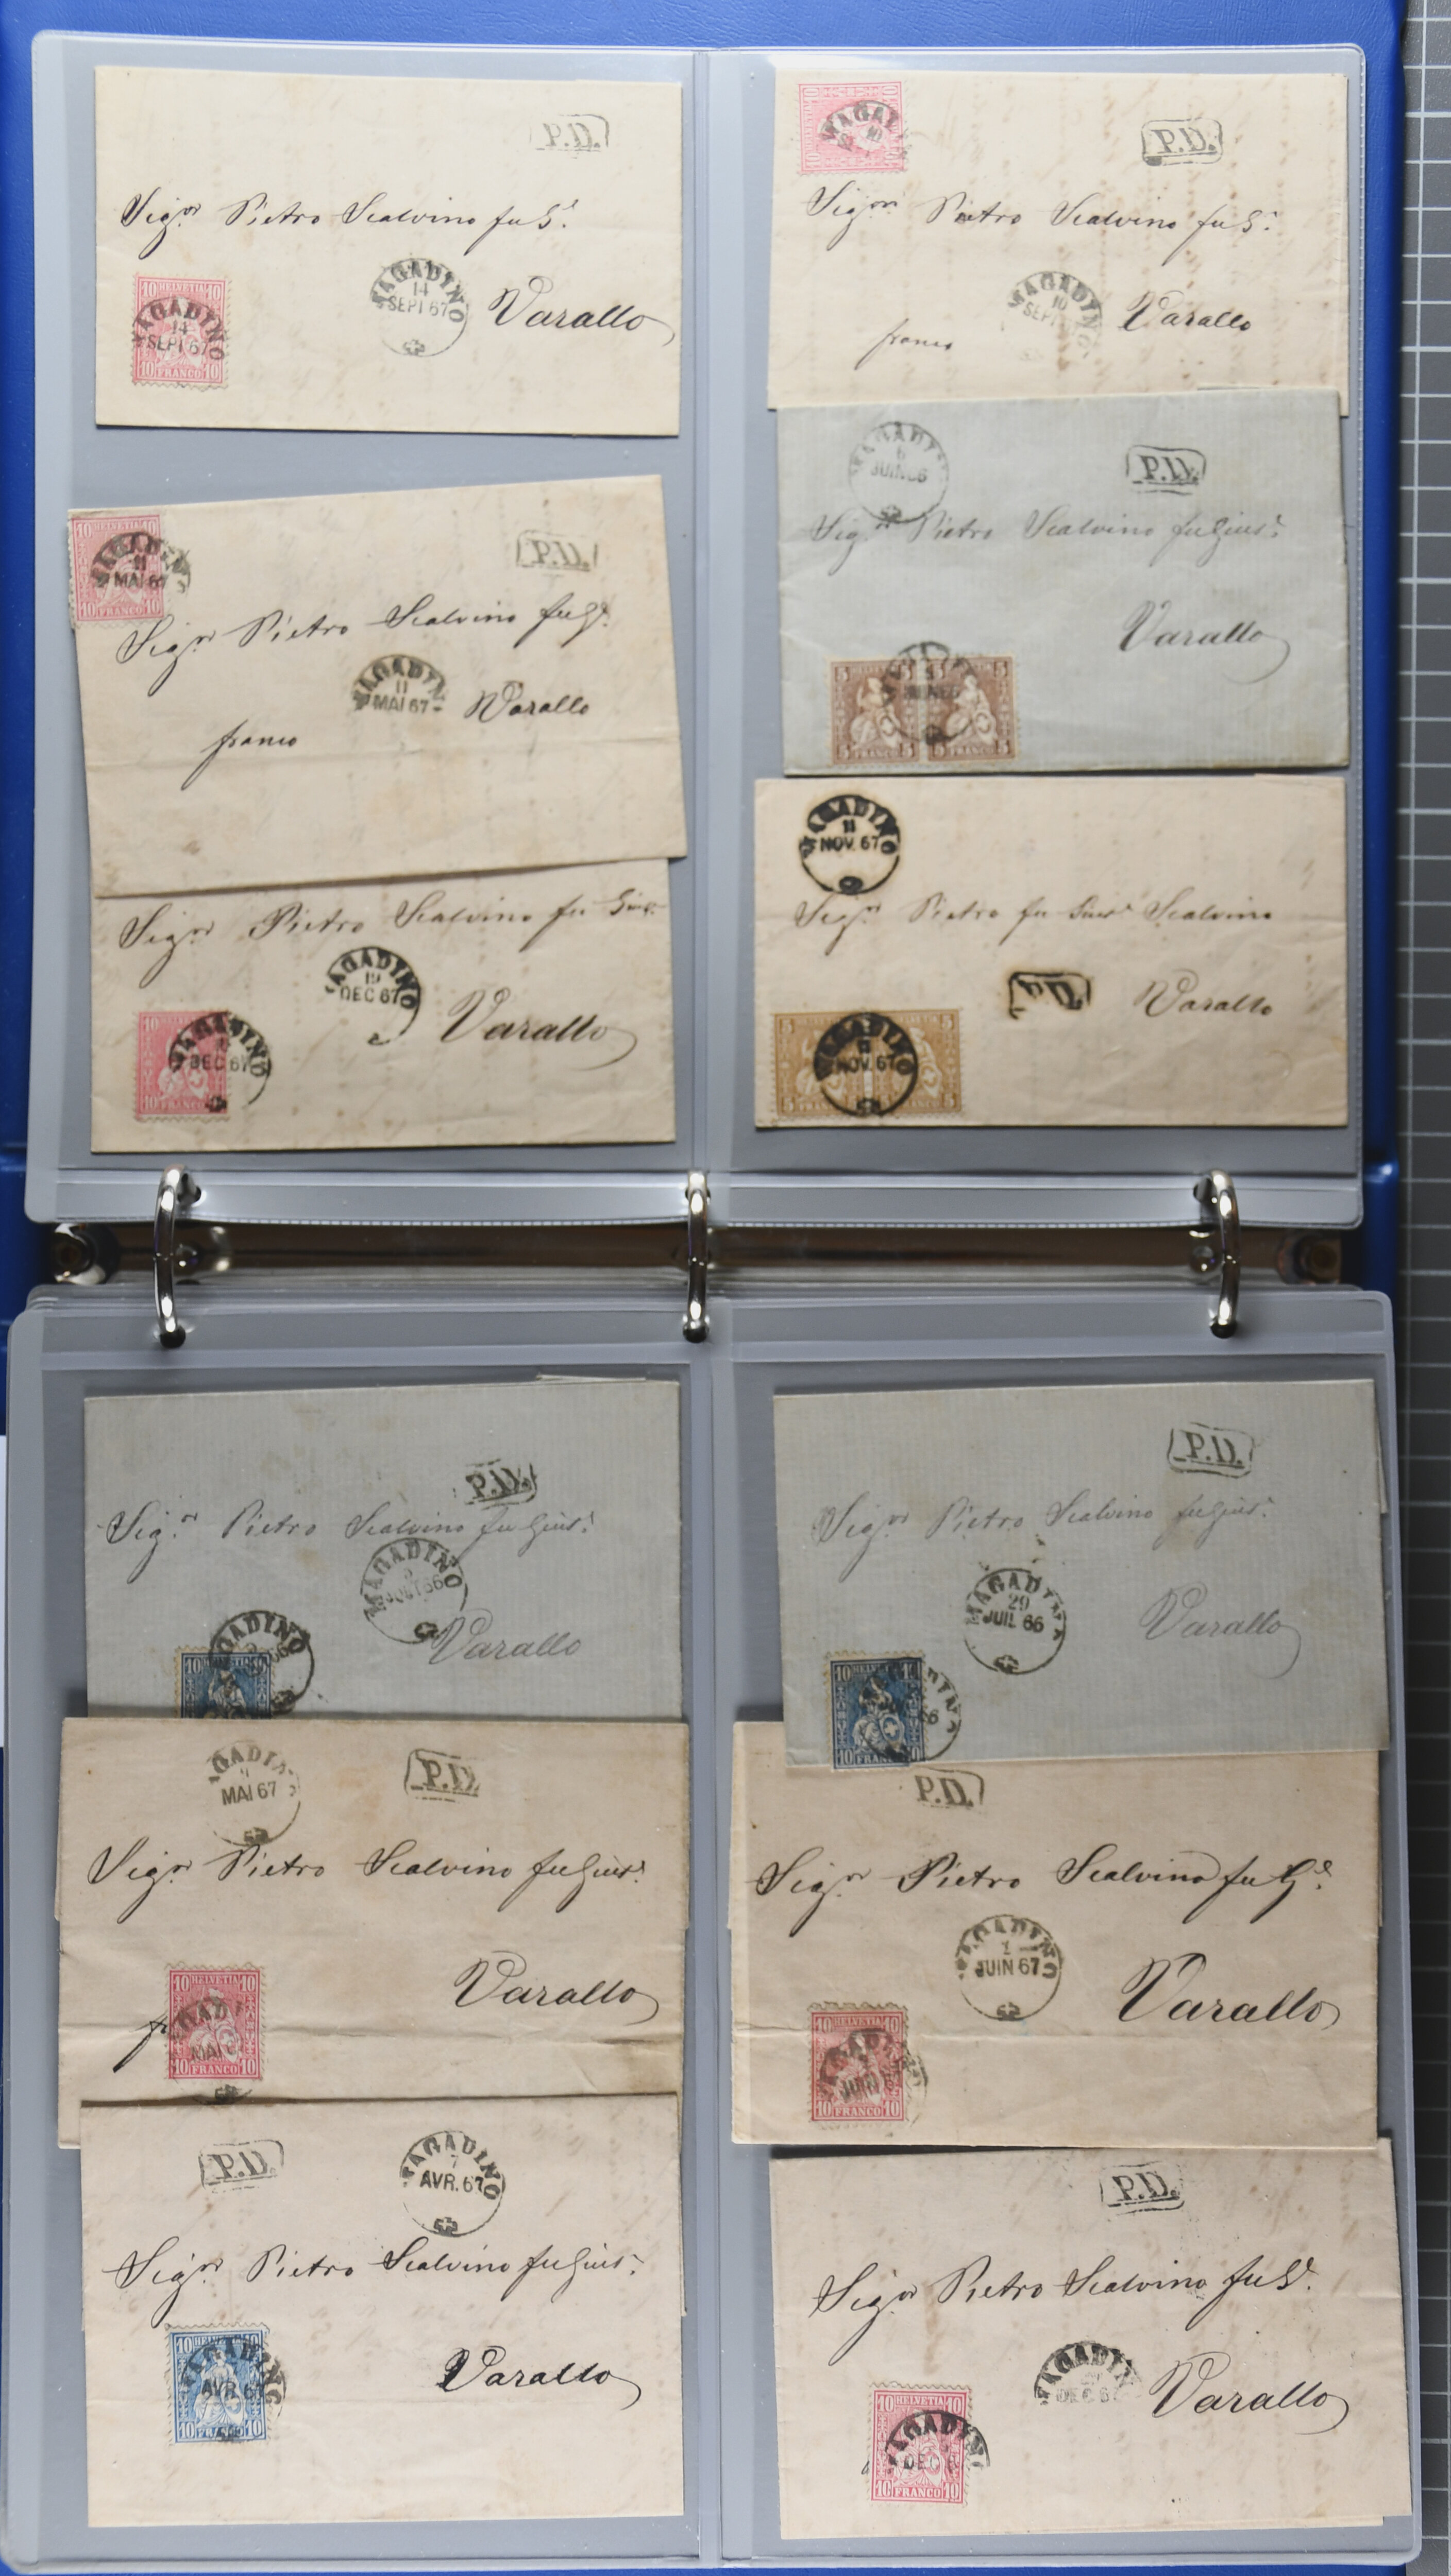 P.D.
Sig.r Pietro Scalvino fu G.e
MAGADINO
14
SEPT 67
Varallo
10 HELVETIA 10
MAGADINO
14
SEPT 67
10 FRANCO 10
P.D.
Sig.r Pietro Scalvino fu G.e
MAGADINO
10
SEPT
Varallo
franco
10 HELVETIA 10
MAGADINO
11
MAI 67
10 FRANCO 10
P.D.
Sig.r Pietro Scalvino fu G.e
MAGADINO
11
MAI 67
Varallo
franco
MAGADINO
JUIN 66
P.D.
Sig.r Pietro Scalvino fu Gius.e
Varallo
5 FRANCO 5
5 FRANCO 5
Sig.r Pietro Scalvino fu Gius.e
MAGADINO
19
DEC 67
Varallo
10
MAGADINO
DEC 67
10 FRANCO
MAGADINO
11
NOV. 67
Sig.r Pietro fu Gius.e Scalvino
P.D.
Varallo
MAGADINO
11
NOV. 67
P.D.
Sig.r Pietro Scalvino fu Gius.e
MAGADINO
66
Varallo
MAGADINO
10 HELVETIA 10
P.D.
Sig.r Pietro Scalvino fu Gius.e
MAGADINO
29
JUIL 66
Varallo
10 HELVETIA 10
66
10 FRANCO 10
MAGADINO
MAI 67
P.D.
Sig.r Pietro Scalvino fu Gius.e
Varallo
10 HELVETIA 10
MAGADINO
MAI
10 FRANCO 10
P.D.
Sig.r Pietro Scalvino fu G.e
MAGADINO
1
JUIN 67
Varallo
10 HELVETIA 10
MAGADINO
JUIN
10 FRANCO 10
P.D.
MAGADINO
7
AVR. 67
Sig.r Pietro Scalvino fu Gius.e
Varallo
10 HELVETIA 10
MAGADINO
AVR. 67
10 FRANCO 10
P.D.
Sig.r Pietro Scalvino fu G.e
MAGADINO
DEC 67
Varallo
10 HELVETIA 10
MAGADINO
DEC
10 FRANCO 10